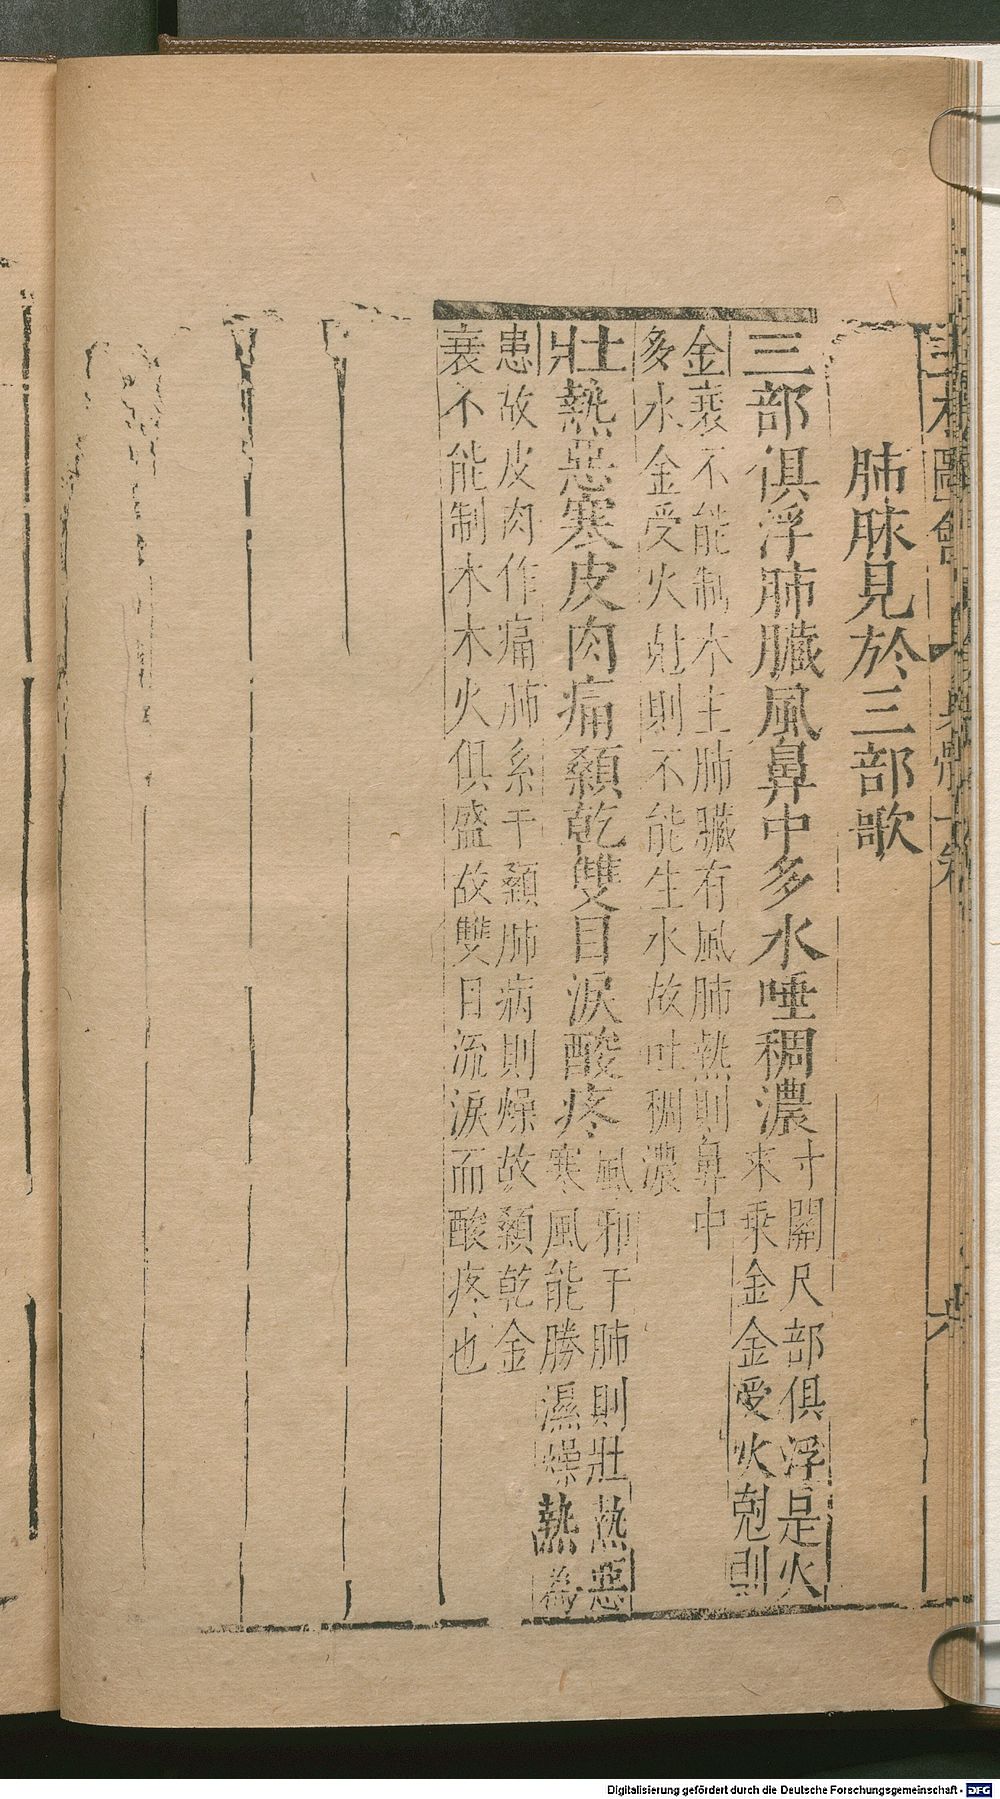 三才圖會 身體 卷
肺脉見於三部歌
三部俱浮肺臟風鼻中多水唾稠濃
寸關尺部俱浮是火
來乘金金受火尅則
金衰不能制木主肺臟有風肺熱則鼻中
多水金受火尅則不能生水故吐稠濃
壯熱惡寒皮肉痛顙乾雙目淚酸疼
風邪干肺則壯熱惡
寒風能勝濕燥熱為
患故皮肉作痛肺系干顙肺病則燥故顙乾金
衰不能制木木火俱盛故雙目流淚而酸疼也
Digitalisierung gefördert durch die Deutsche Forschungsgemeinschaft - DFG